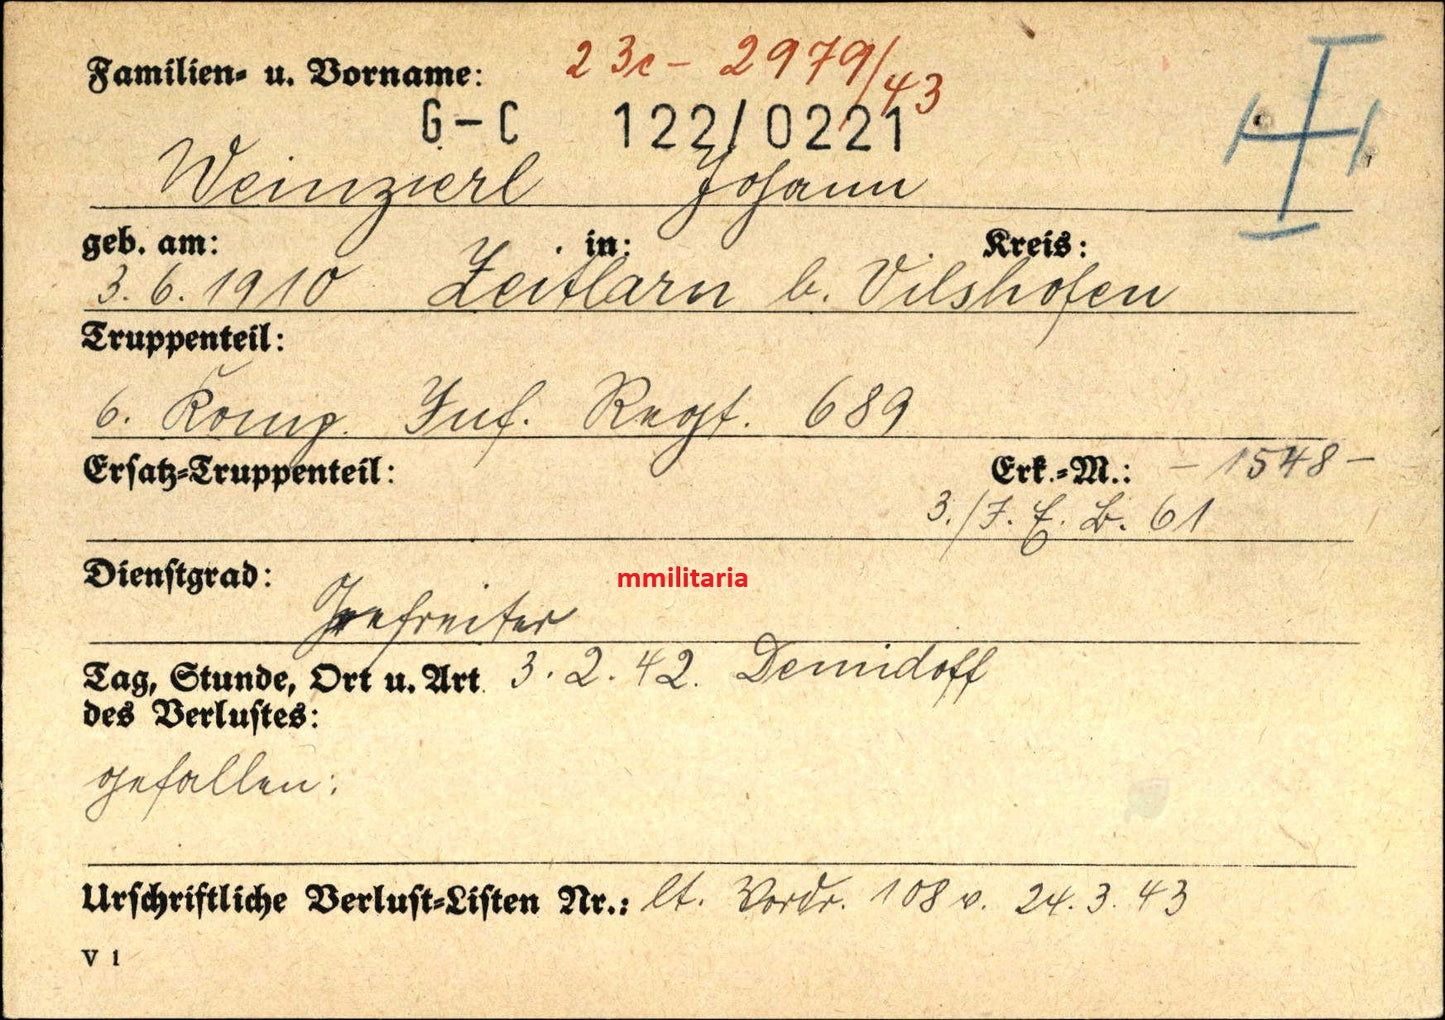 Familien- u. Vorname: 23c - 2979/43
G-C 122/0221
Weinzierl Johann
geb. am: in: Kreis:
3.6.1910 Zeitlarn b. Vilshofen
Truppenteil:
6. Komp. Inf. Regt. 689
Ersatz-Truppenteil: Erk.-M.: - 1548 -
3./J.E.B. 61
Dienstgrad:
mmilitaria
Gefreiter
Tag, Stunde, Ort u. Art 3.2.42. Demidoff
des Verlustes:
gefallen:
Urschriftliche Verlust-Listen Nr.: lt. Vordr. 108 v. 24.3.43
V 1